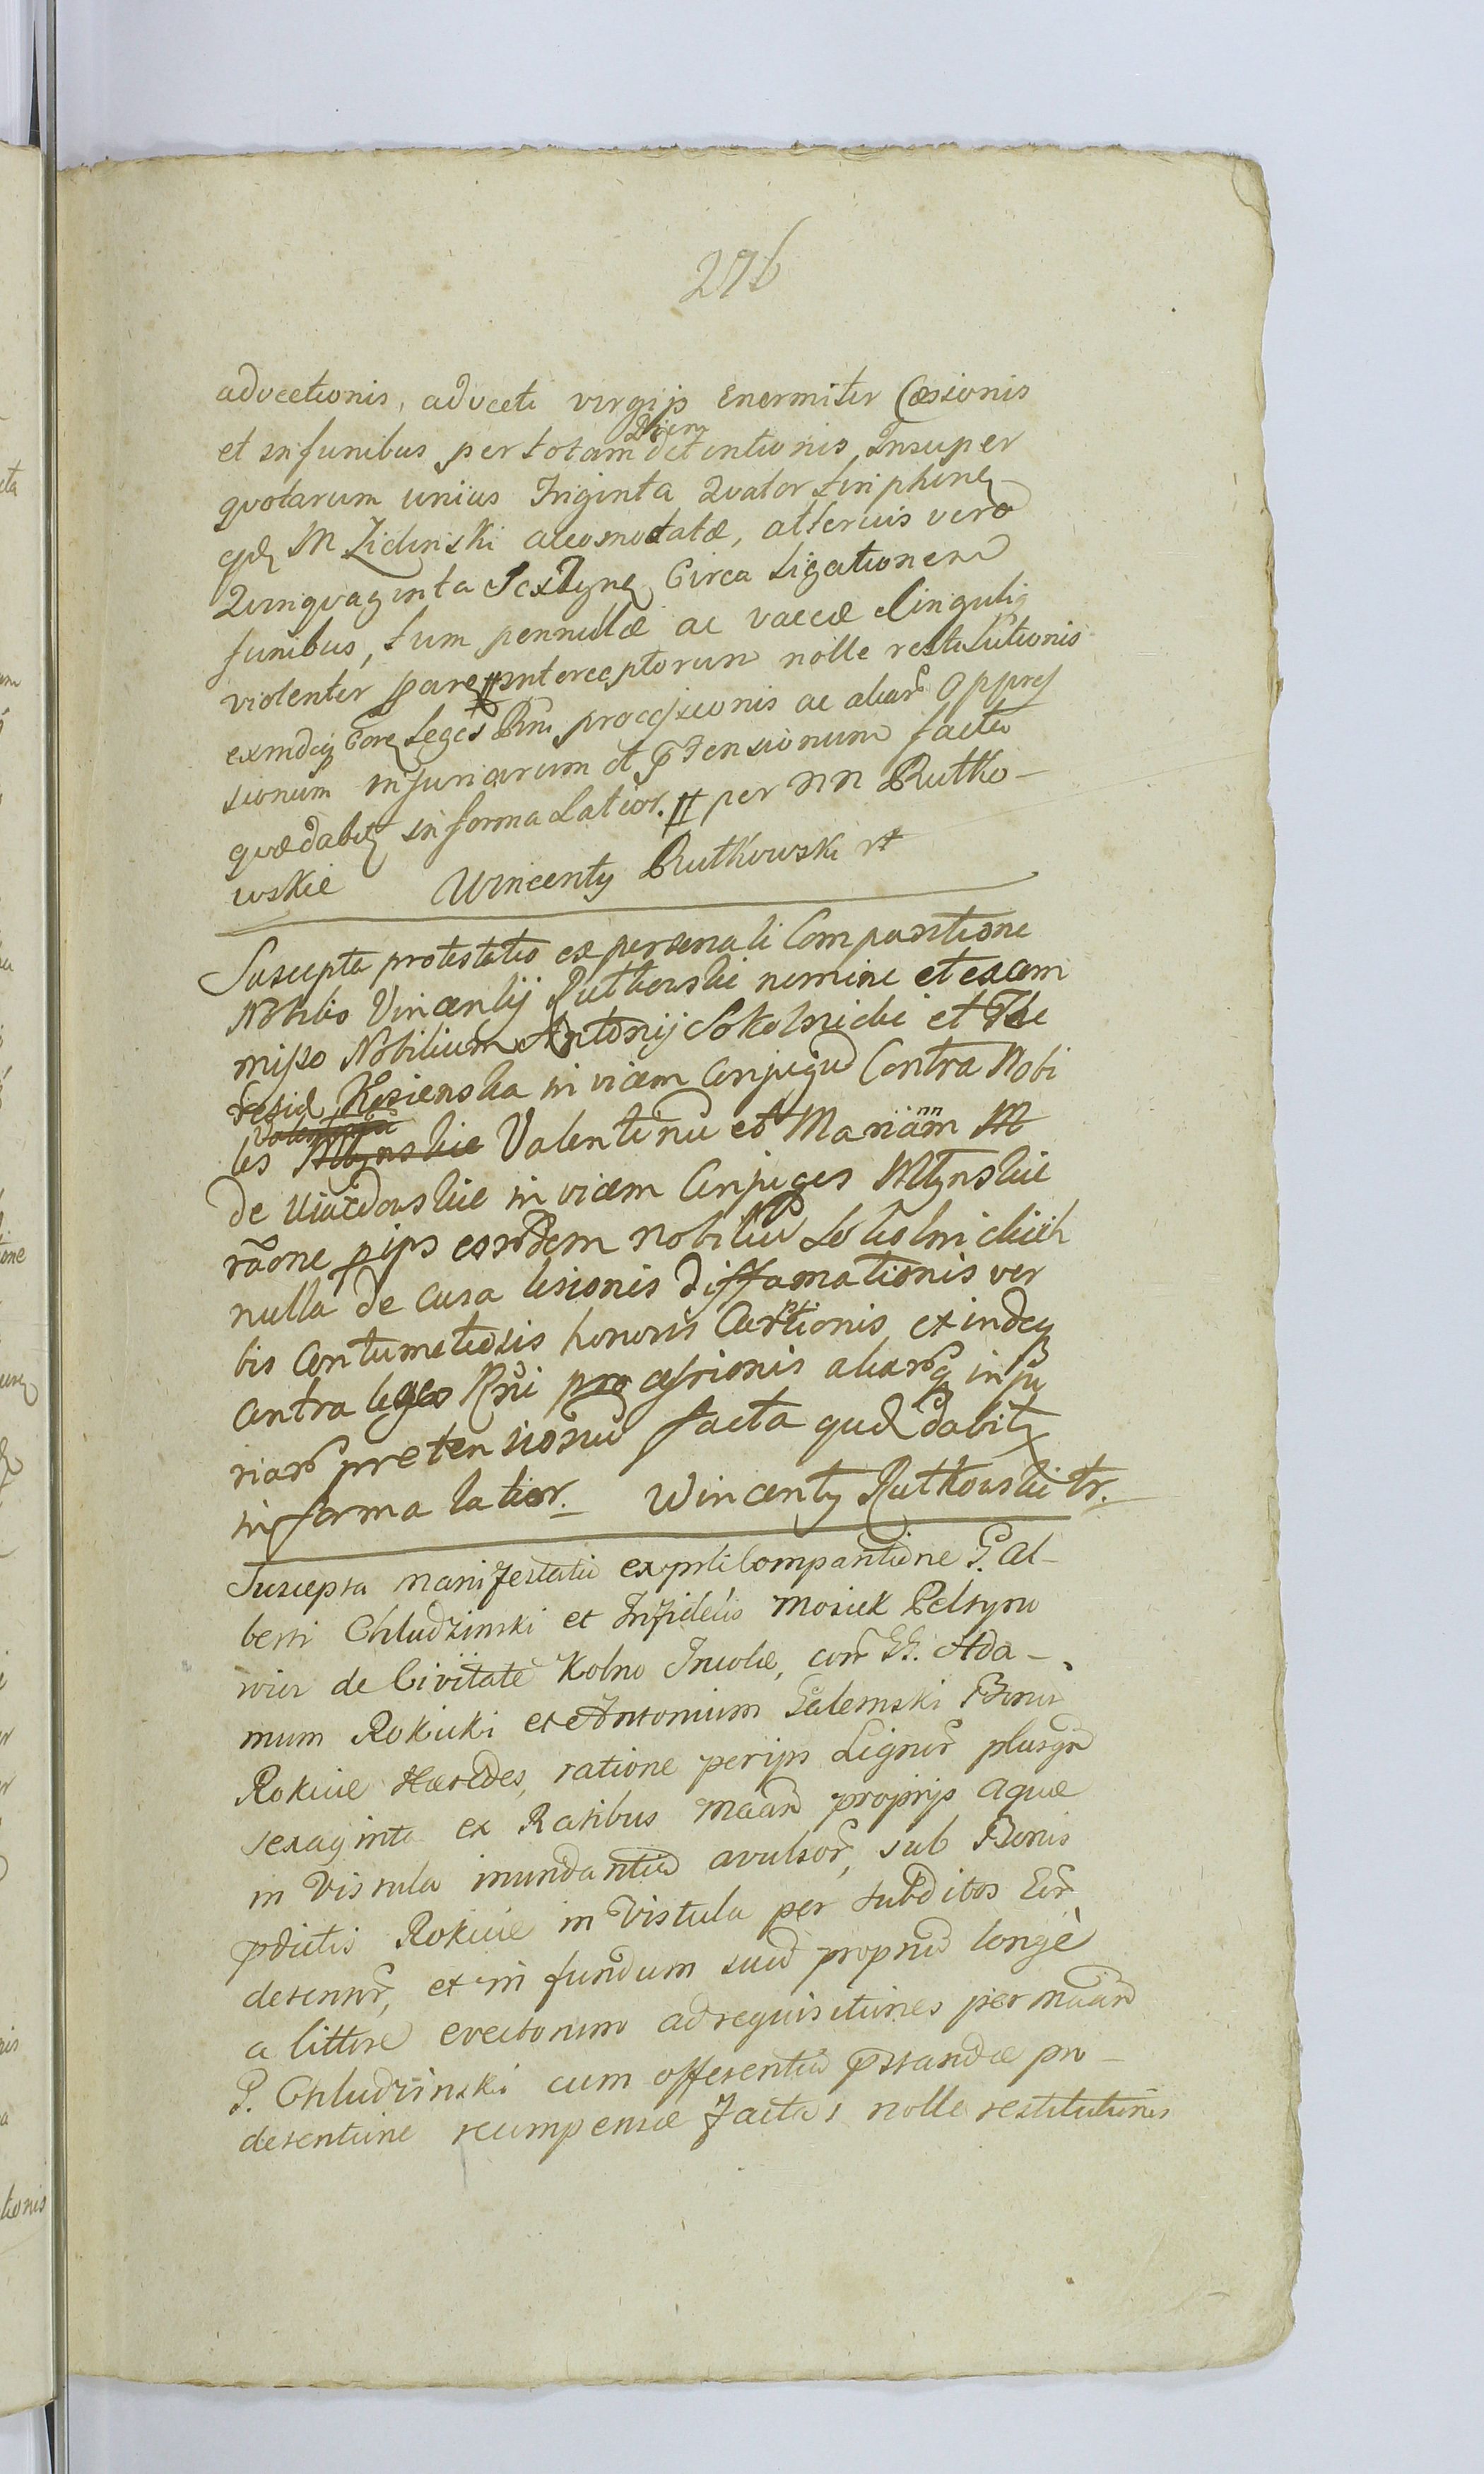 276
advectionis, advecti virgijs Enormiter Cæsionis
et in funibus per totam Diem detentionis, Insuper
quotarum unius Triginta Quator
M Zidunski acComodatæ, alterius vero
Quinquaginta Circa Ligationem
funibus, tum pennulæ ac vaccæ
violenter interceptorum nolle restitutionis
Leges Rni processionis ac aliar Oppres
sionum injuriarum et pTensionum facta
quædabit in forma Latior. # per NN Rutko-
wskie Wincenty Rutkowski
Suscepta protestatio ex personali Comparitione
Nobilis Vincentij Rutkowski nomine et ex com
misso Nobilium Antonij Sokolnicki et The
resiæ Kosienska in vicem Conjugū Contra Nobi
les Młynskie Valentinū et Mariannam
de Wiardowskie in vicem Conjuges Młynskie
rãone p ips eorŏdem Nobiliū Sokolnickich
nulla de causa lesionis diffamationis ver
bis Contumeliosis honoris Carptionis exindeq
Contra leges Rni processionis aliarŏq inju
riarŏ pretensionū facta quæ dabit
in forma latior. Wincenty Rutkowski
Suscepta manifestatio ex prli Comparitione G. Al-
berti Chludzinski et Infidelis Mosiek Pelty
wicz de Civitate Kolno Incolæ, con GG. Ada-
mum Rokicki et Antonium Galemski Bonor
Rokicie Hæredes, ratione per ips Lignor plusqm
sexaginta ex Ratibus proprijs aquæ
in Vistula inundantia avulsor, sub Bonis
pdictis Rokicie in Vistula per subditos Eor
detentor, et in fundum suū propriū longè
a littore evectorum ad requisitiones per
G. Chludzinski cum offerentia pstandæ pro
detentione recompensæ factas nolle restitutionis